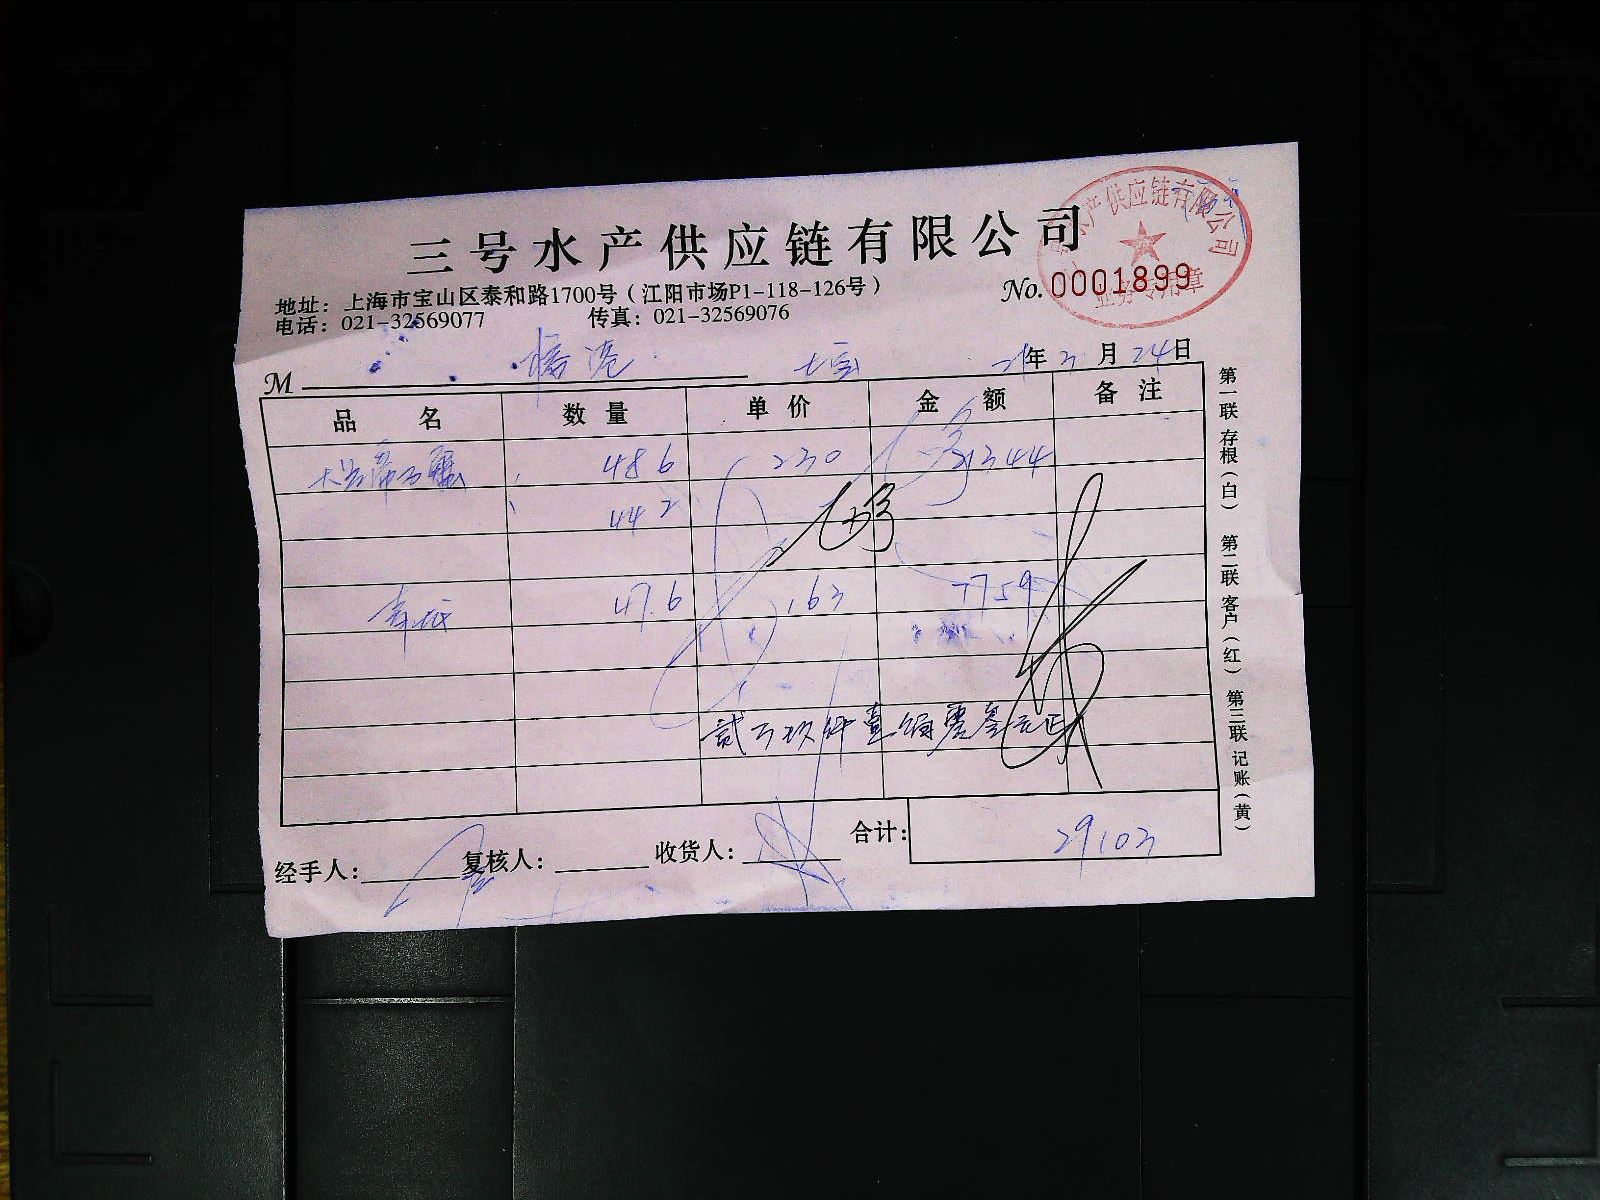 三号水产供应链有限公司
水产供应链有限公司
业务专用章
No. 0001899
地址：上海市宝山区泰和路1700号（江阳市场P1-118-126号）
电话：021-32569077 传真：021-32569076
M 七宝 21年3月24日
品名 数量 单价 金额 备注
48.6 230 21344
44.2
47.6 163 7759
贰万玖仟壹佰零叁元正
合计：29103
经手人： 复核人： 收货人：
第一联 存根（白） 第二联 客户（红） 第三联 记账（黄）